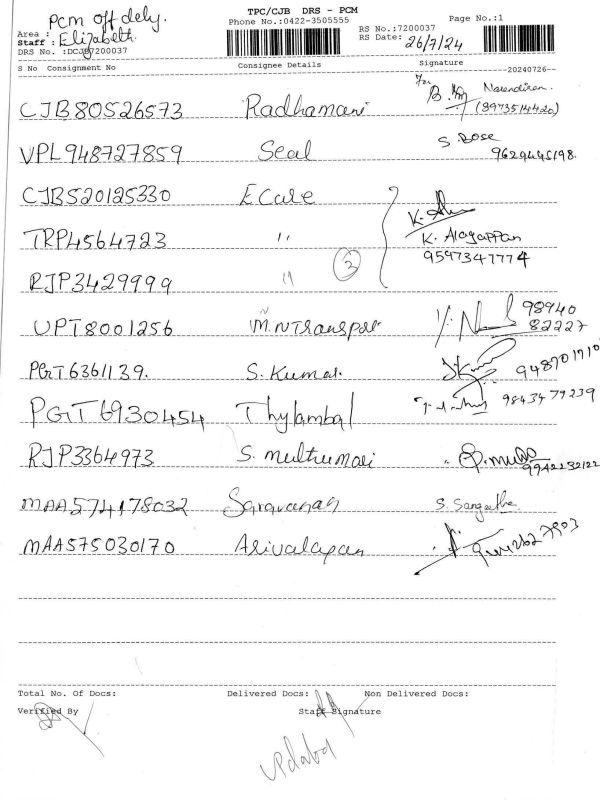 TPC/CJB DRS - PCM
Pcm off dely.
Phone No.:0422-3505555
Page No.:1
Area :
Staff : Elizabeth
RS No.:7200037
RS Date: 26/7/24
DRS No. :DCJB7200037
S No Consignment No Consignee Details Signature
--20240726--
CJB80526573 Radhamani For B. Narendiran. (8973514420)
VPL948727859 Seal S. Bose 9629445198.
CJB520125330 Ecare
TRP4564723 " (3) K. Alagappan 9597347774
RJP3429999 "
UPT8001256 M.N Transport 98940 82227
PGT6361139. S. Kumar.
PGT6930454 Thylambal 9843479239
RJP3364973 S. muthumari 9942232122
MAA574178032 Saravanan S. Sangeetha
MAA575030170 Arivalapan
Total No. Of Docs: Delivered Docs: Non Delivered Docs:
Verified By Staff Signature